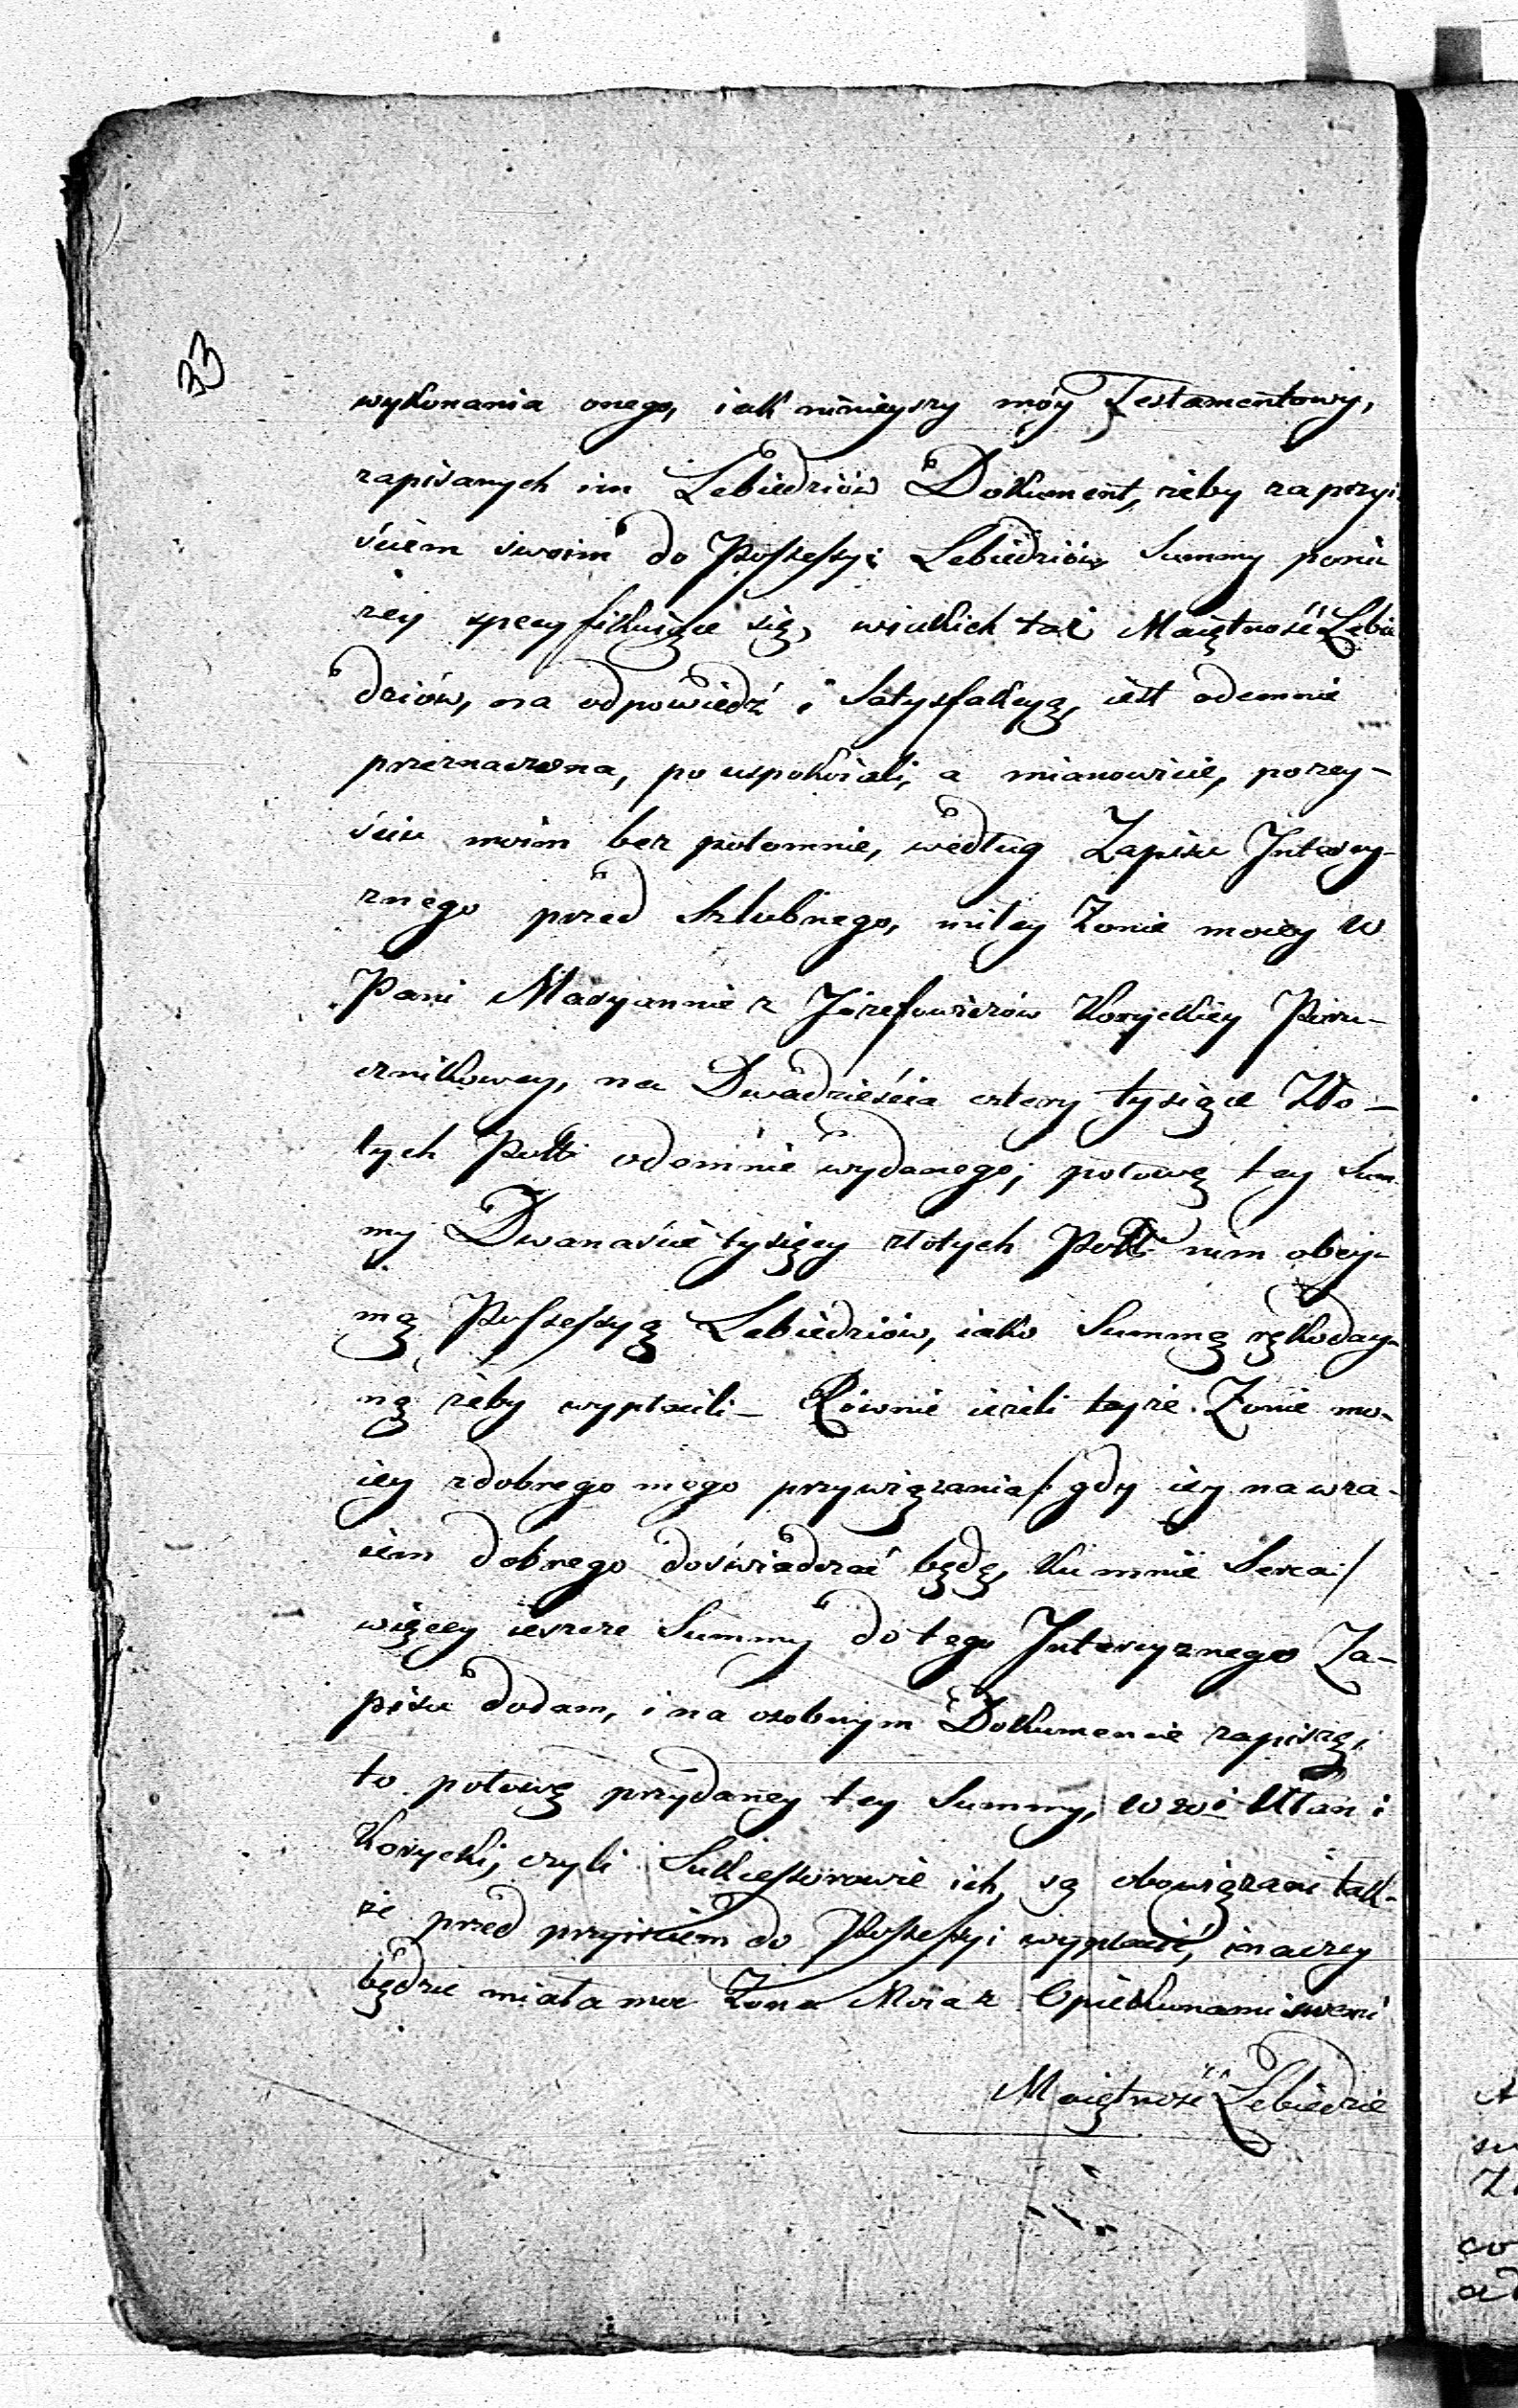 33
wykonania onego, iak ninieyszy móy Testamentowy,
zapisanych im Lebiedziów Dokument, żeby za przyi
ściem swoim do Possessyi Lebiedziów Summy poni
żey specyfikuiące się, w iakich też Maiętność Lebie
dziów, na odpowiedź i Satysfakcyą, iest odemnie
przeznaczona, po uspokoiali, a mianowicie, po zey-
ściu moim bez potomnie, według Zapisu Intercy-
znego przed Szlubnego, miłey Żonie moiey W
Pani Maryannie z Józefowiczów Koryckiey Poru-
cznikowey, na Dwadzieścia cztery tysiące Zło-
tych Polk odemnie wydanego; połowę tey Sum
my Dwanaście tysięcy złotych Polk nim obey-
mą Possessyą Lebiedziów, iako Summę rękoday-
ną żeby wypłacili - Równie ieżeli teyże Żonie mo-
iey z dobrego mego przywiązania /: gdy iey nawza-
iem dobrego doświadczać będę, ku mnie Serca :/
więcey ieszcze Summy do tego Intercyznego Za-
pisu dodam, i na osobnym Dokumencie zapiszę;
to połowę przydaney tey Summy, WW i Ułan i
Korycki, czyli Sukcessorowie ich, są obowiązani tak-
że przed przyiściem do Possessyi wypłacić, inaczey
będzie miała moc Żona Moia z Opiekunami swemi
Maiętność Lebiedzie